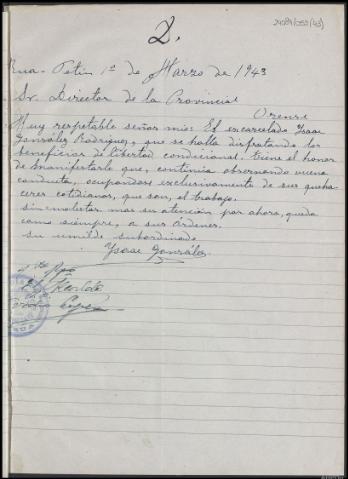 24089/050(43)
2.
Rua-Petin 1º de Marzo de 1943
Sr. Director de la Provincial
Orense
Muy respetable señor mio: El encarcelado Isaac
González Rodriguez, que se halla disfrutando los
beneficios de libertad condicional. tiene el honor
de manifestarle que, continua observando vuena
conducta, ocupandose exclusivamente de sus queha-
ceres cotidianos, que son, el trabajo.
sin molestar mas su atención por ahora, queda
como siempre, a sus órdenes.
su umilde subordinado
Isaac González